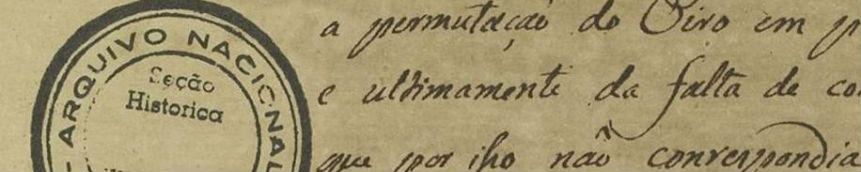 ARQUIVO NACIONAL
Seção
Historica
a permutação do Oiro em p
e ultimamente da falta de co
que por isso não correspondia